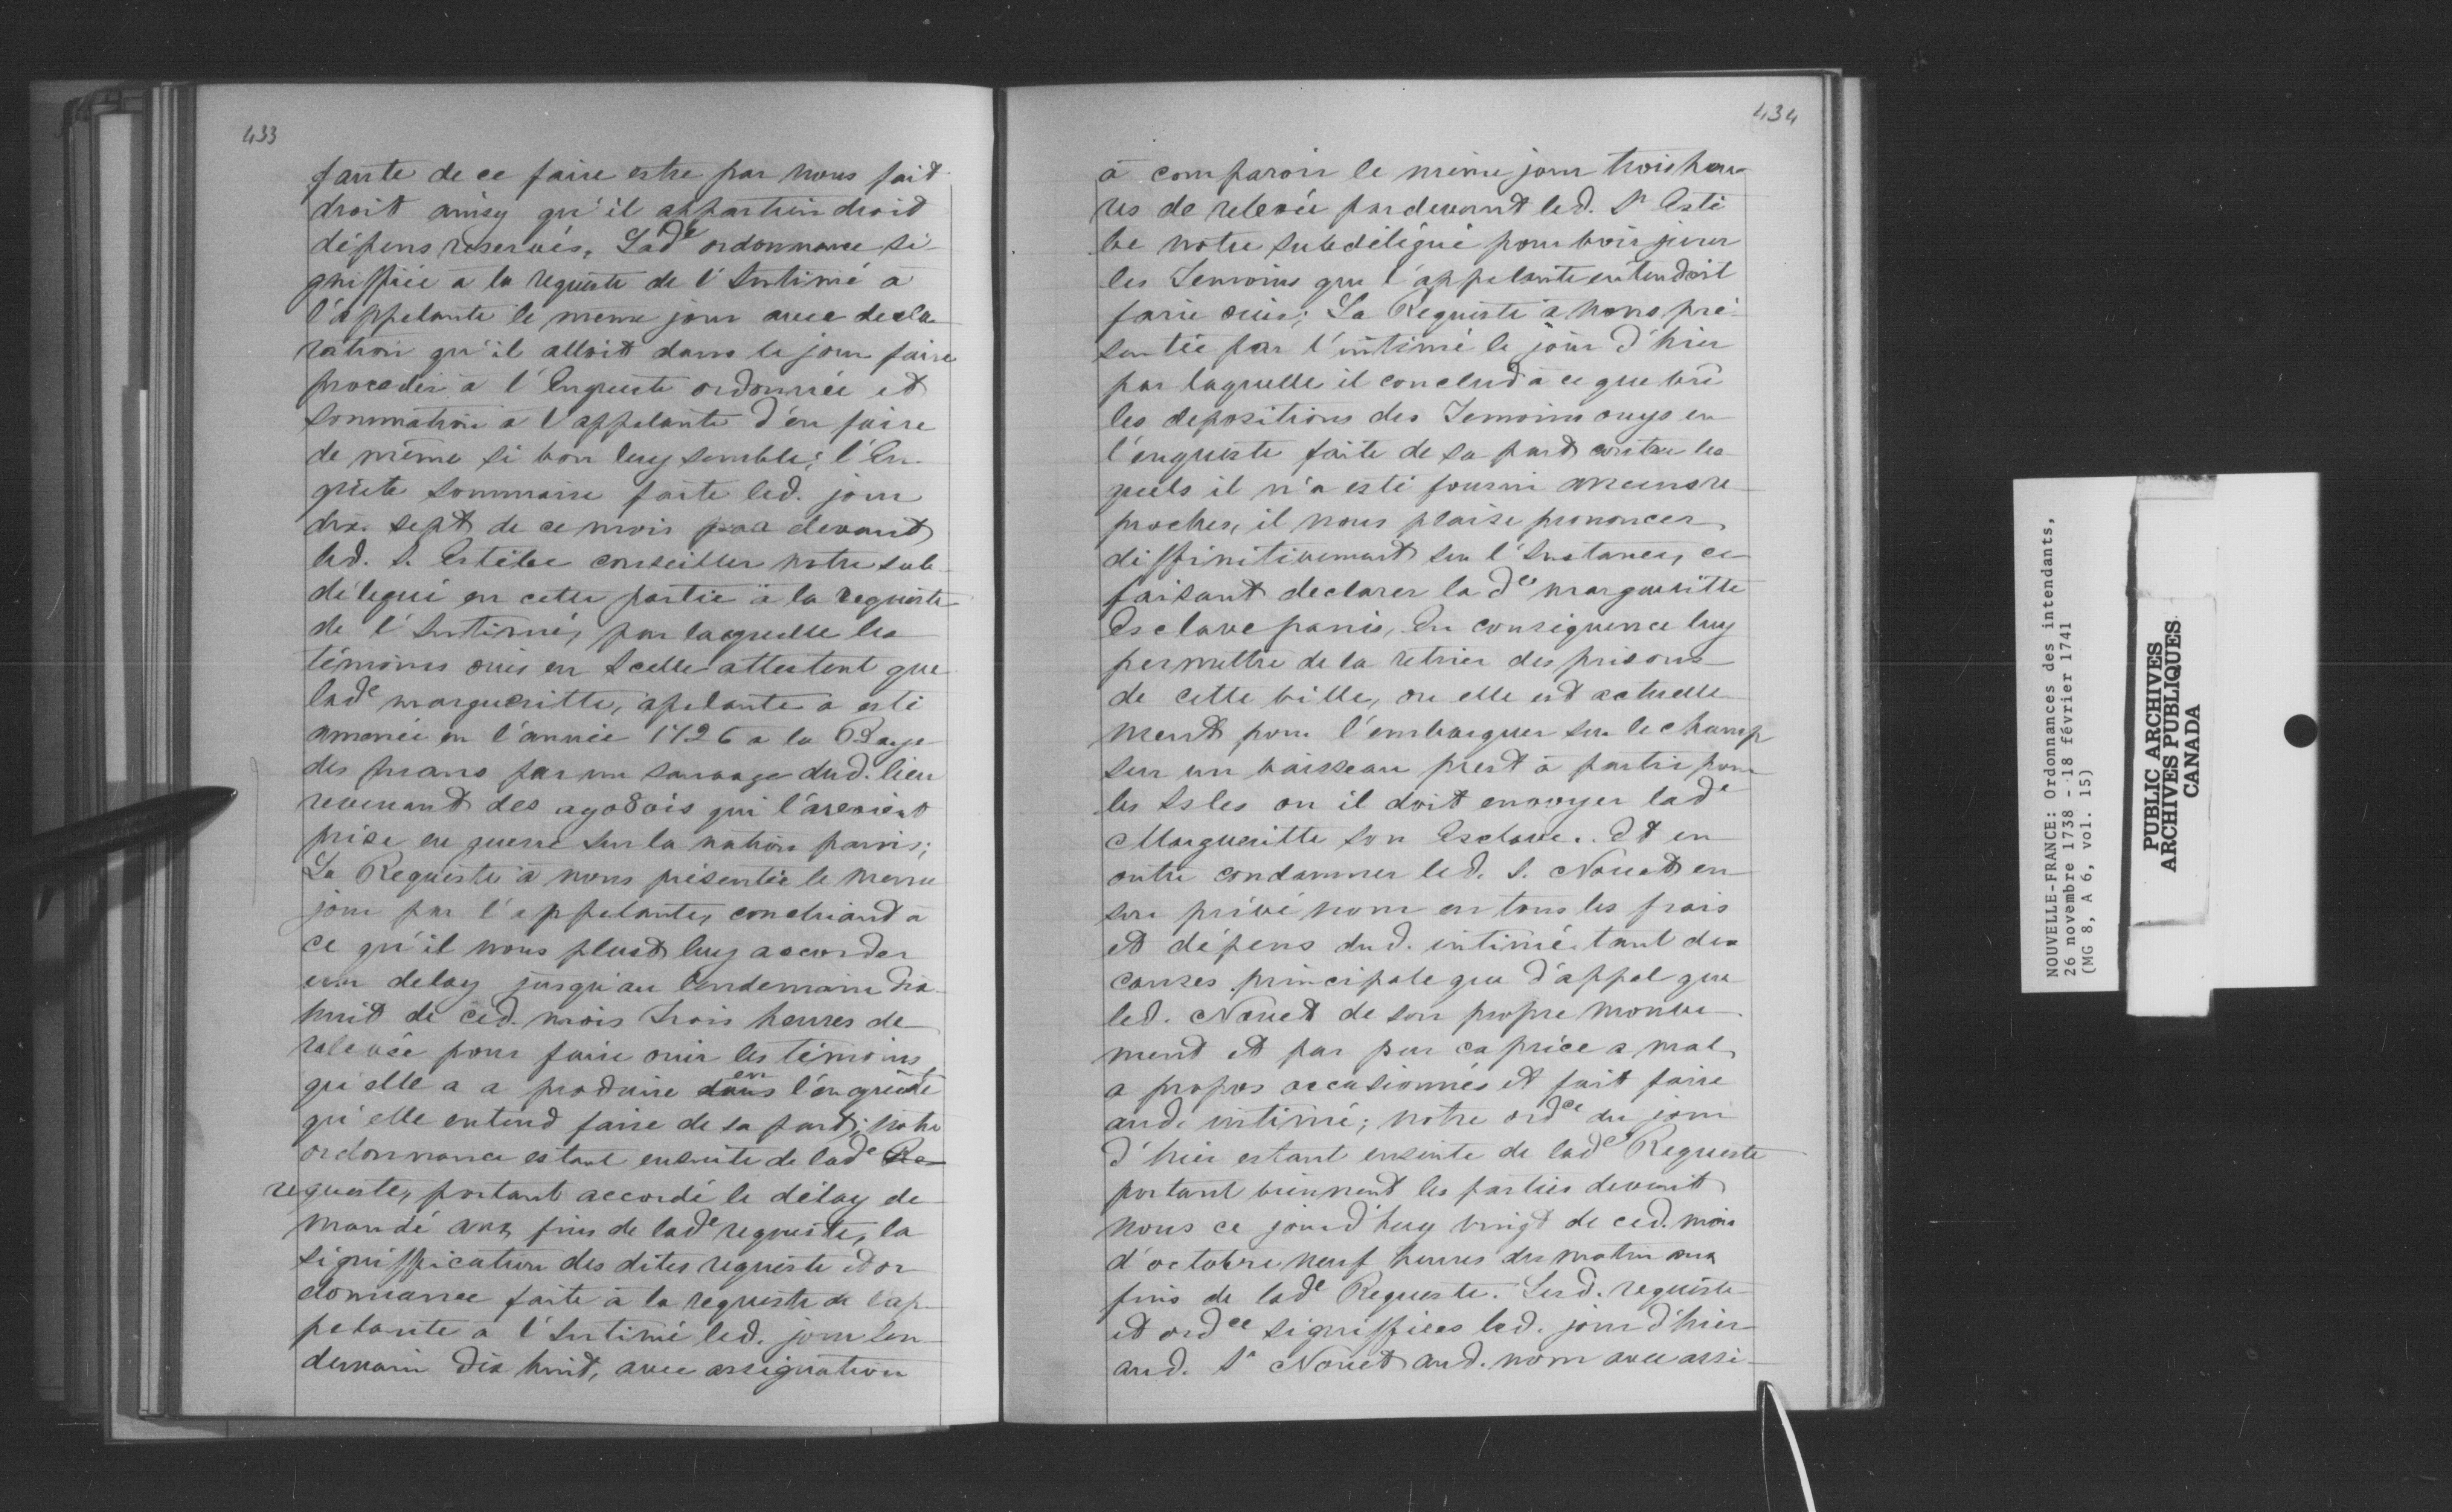 433
faute de ce faire estre par nous fait
droit ainsy qu'il appartiendroit
dépens reservés, Lade ordonnance si-
gniffiée a la requeste de l'Intimé a
l'appelante le meme jour avec decla
ration qu'il alloit dans le jour faire
proceder a l'Enqueste ordonnée et
sommation a l'appelante d'en faire
de même si bon luy semble; l'En
quête sommaire faite led. jour
dix sept de ce mois par devant
led. S. Estèbe conseiller notre sub
délégué en cette partie à la requeste
de l'Intimé, par laquelle les
témoins ouis en Icelle attestent que
lade margueritte, apelante a esté
amenée en l'année 1726 a la Baye
des puans par un sauvage dud. lieu
revenant des ayo8ois qui l'avoient
prise en guerre sur la nation panis;
La Requeste à nous présentée le meme
jour par l'appelante, concluand à
ce qu'il nous plust luy accorder
un delay jusqu'au lendemain dix
huit de ced. mois trois heures de
relevée pour faire ouir les témoins
qu'elle a a produire dans en l'enqueste
qu'elle entend faire de sa part; notre
ordonnance estant ensuite de lade Re
requeste, portant accordé le délay de
mandé aux fins de lade requeste, la
signiffication des dites requeste et or
donnance faite à la requeste de l'ap
pelante a l'Intimé led. jour len
demain dix huit, avec assignation
434
à comparoir le même jour trois heu
res de relevée pardevant led. Sr Estè
be notre subdélégué pour voir jurer
les Temoins que l'appelante entendoit
faire ouir; La Requeste à nous pré-
sentée par l'intimé le jour d'hier
par laquelle il conclud à ce que vû
les depositions des Temoins ouys en
l'enqueste faite de sa part contre les
quels il n'a esté fourni aucuns re
proches, il nous plaise prononcer
diffinitivement sur l'Instance, ce
faisant declarer la de margueritte
Esclave panis, En consequence luy
permettre de la retirer des prisons
de cette ville, ou elle est actuelle
ment pour l'embarquer sur le champ
sur un vaisseau prest à partir pour
les Isles ou il doit envoyer lade
Margueritte son Esclave. Et en
outre condamner led. S. Nouet en
son privé nom en tous les frais
et dépens dud. intimé tant des
causes principale que d'appel que
led. Nouet de son propre mouve
ment et par pur caprice a mal
a propos occasionnés et fait faire
aud. intimé; notre ordce du jour
d'hier estant ensuite de lade Requeste
portant viennent les parties devant
nous ce jourd'huy vingt de ced. mois
d'octobre neuf heures du matin aux
fins de lade Requeste. Lesd. requeste
et ordce signiffiées led. jour d'hier
aud. Sr Nouet aud. nom avec assi-
NOUVELLE-FRANCE: Ordonnances des intendants,
26 novembre 1738 - 18 février 1741
(MG 8, A 6, vol. 15)
PUBLIC ARCHIVES
ARCHIVES PUBLIQUES
CANADA